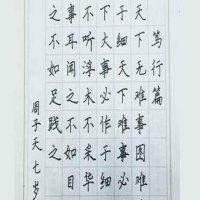 笃行篇
天下无难事图难
于细天下难事必
下大事必作于细
不听淳末不采华
事耳闻之不如目
之不如足践之
周子天七岁